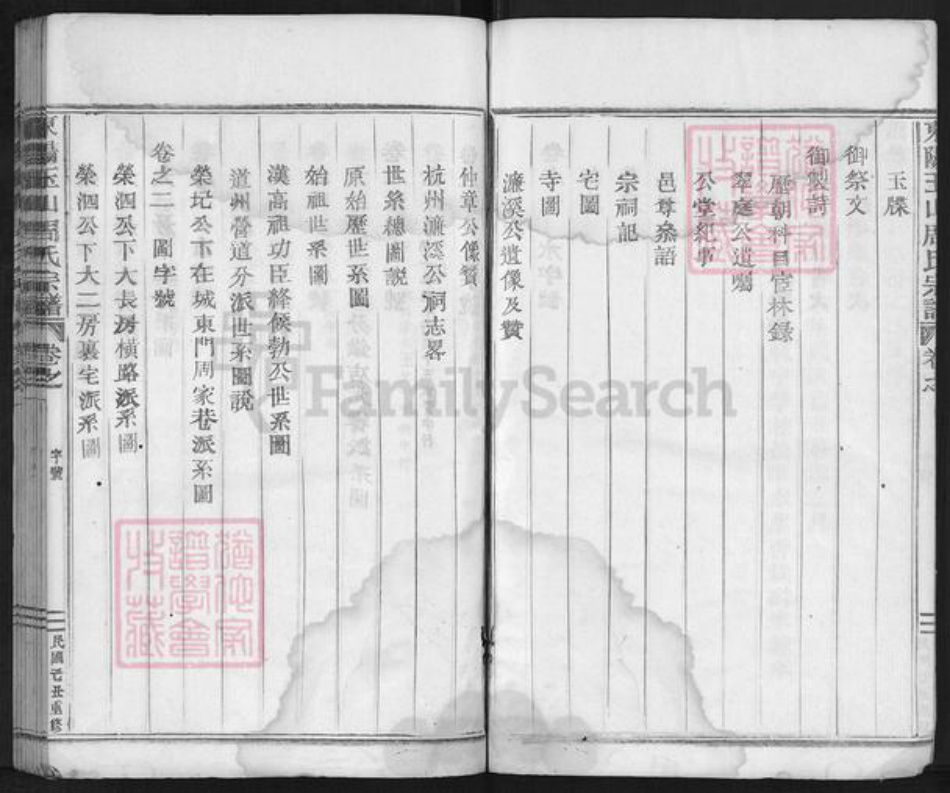 玉牒
御祭文
御製詩
歷朝科目宦林錄
翠庭公遺囑
公堂紀事
邑尊叅語
宗祠記
宅圖
寺圖
濂溪公遺像及贊
仲章公像贊
杭州濂溪公祠志畧
世系總圖說
原始歷世系圖
始祖世系圖
漢高祖功臣絳候勃公世系圖
道州營道分派世系圖說
榮圮公下在城東門周家巷派系圖
卷之二 圖字號
榮泗公下大長房橫路派系圖
榮泗公下大二房裏宅派系圖
東陽玉山周氏宗譜 卷之
字號
民國己丑重修
東陽玉山周氏宗譜 卷之
猶他家譜學會收藏
猶他家譜學會收藏
FamilySearch